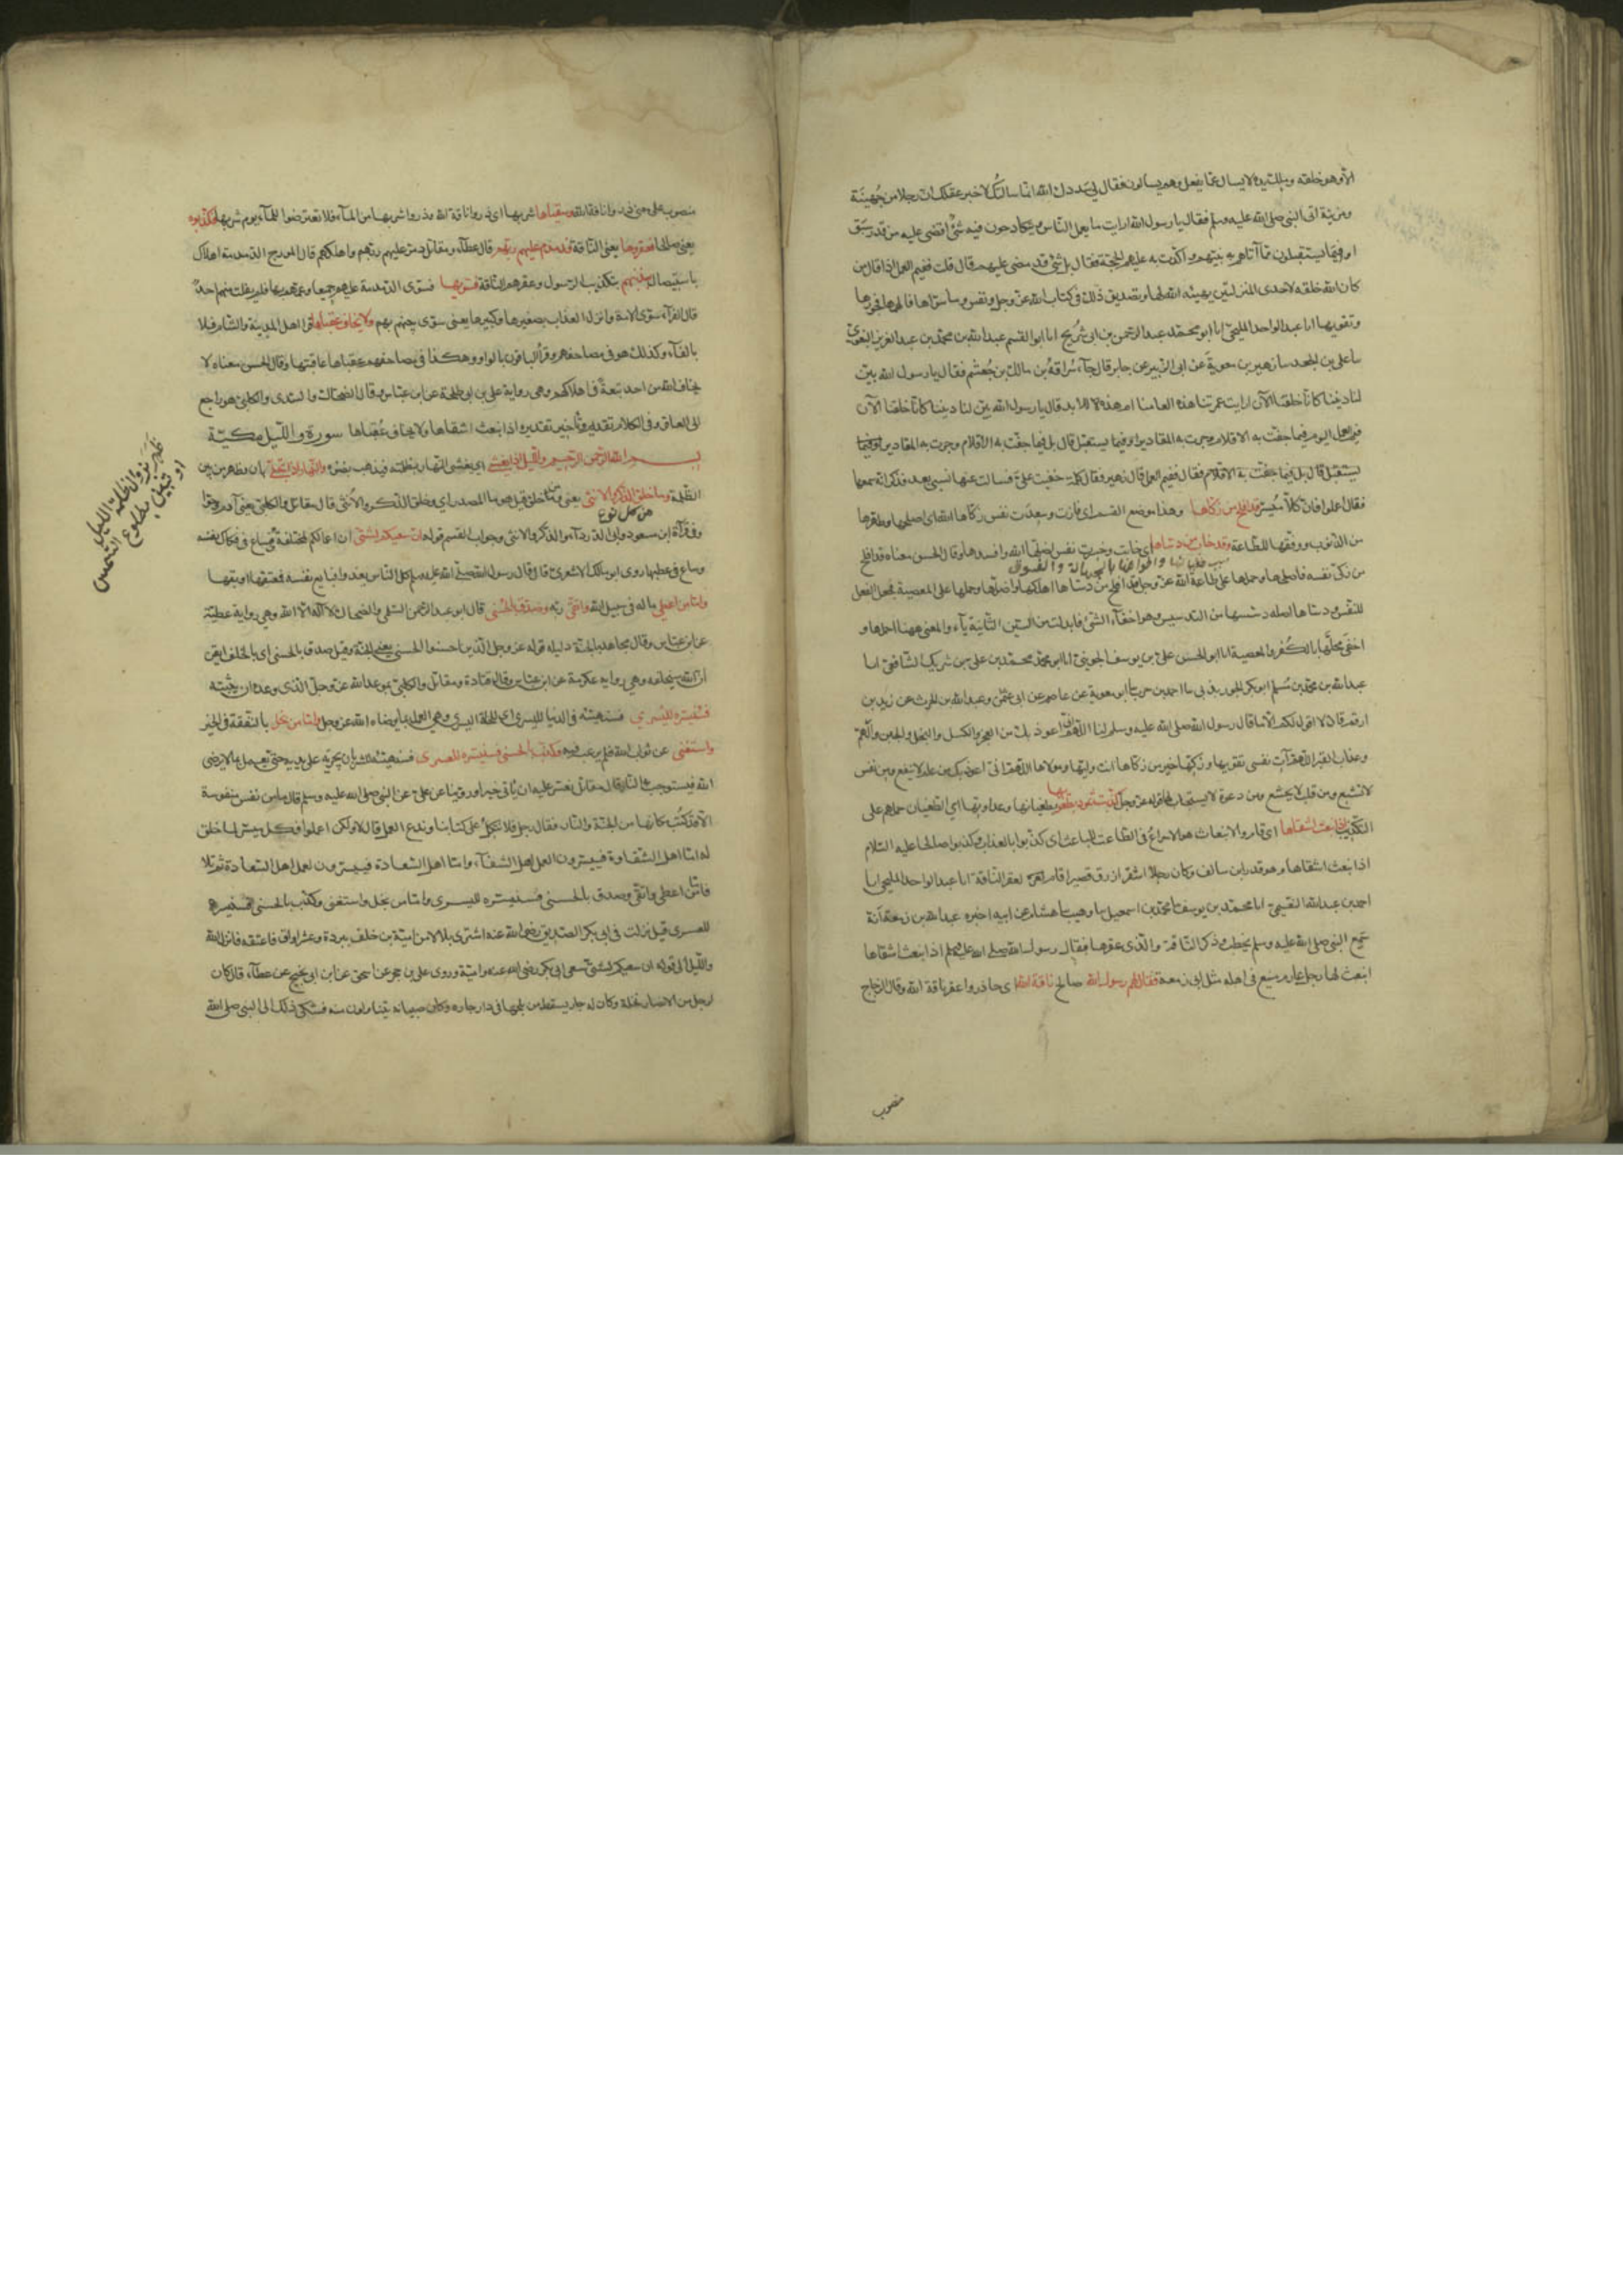 الا وهو خلقه وملك يده لا يسال عما يفعل وهم يسالون فقال لي سددك الله انما سالتك لاخبر عقلك ان رجلا من جُهينة
ومزينة اتى النبي صلى الله عليه وسلم فقال يا رسول الله ارايت ما يعمل الناس ويتكادحون فيه شئ قضي عليهم من قدر سبق
او فيما يستقبلون مما آتاهم به نبيهم واكدت به عليهم الحجة فقال بل شئ قد مضى عليهم قال قلت ففيم العمل اذا قال من
كان الله خلقه لاحدى المنزلتين يهيئه الله لها وتصديق ذلك في كتاب الله عز وجل ونفس وما سواها فالهمها فجورها
وتقويها انا عبد الواحد المليحي انا ابو محمد عبد الرحمن بن ابي شريح انا ابو القسم عبد الله بن محمد بن عبد العزيز البغوي
سا على بن الجعد سا زهير بن معوية عن ابى الزبير عن جابر قال جآء سُراقة بن مالك بن جُعشم فقال يا رسول الله بيّن
لنا ديننا كانا خلقنا الآن ارايت عمرتنا هذه العامنا ام هذه للابد قال يا رسول الله بين لنا ديننا كانا خلقنا الآن
فيم العمل اليوم فيما جفت به الاقلام وجرت به المقادير او فيما يستقبل قال بل فيما جفت به الاقلام وجرت به المقادير
يستقبل قال بل فيما جفت به الاقلام فقال ففيم العمل قال زهير فقال كلمة خفيت علىّ فسالت عنها نسيبى بعد فذكر انه سمعها
فقال اعملوا فان كلا ميسر قد افلح من زكاها وهذا موضع القسم اى فازت وسعدت نفس زكاها الله اى اصلحها وطهرها
من الذنوب ووفقها للطاعة وقد خاب من دساها اى خابت وخسرت نفس اضلها الله وافسدها وقال الحسن معناه قد افلح
من زكى نفسه فاصلحها وحملها على طاعة الله عز وجل وقد خاب من دساها اهلكها واضلها وحملها على المعصية فجعل الفعل
للنفس ودساها اصله دسسها من التدسيس وهو اخفآء الشئ فابدلت من السين الثانية يآء والمعنى ههنا اخملها و
اخفى محلها بالكفر والمعصية انا ابو الحسن على بن يوسف الجوينى انا ابو محمد محمد بن على بن شريك الشافعى انا
عبد الله بن محمد بن مسلم ابو بكر الجوربذى سا احمد بن حرب سا ابو معوية عن عاصم عن ابى عثمن وعبد الله بن الحرث عن زيد بن
ارقم قال لا اقول لكم الا ما قال رسول الله صلى الله عليه وسلم لنا اللهم انى اعوذ بك من العجز والكسل والبخل والجبن والهم
وعذاب القبر اللهم آت نفسى تقويها وزكها خير من زكاها انت وليها ومولاها اللهم انى اعوذ بك من علم لا ينفع ومن نفس
لا تشبع ومن قلب لا يخشع ومن دعوة لا يستجاب لها قوله عز وجل كذبت ثمود بطغويها بطغيانها وعداوتها اى الطغيان حملهم على
التكذيب اذ انبعث اشقاها اى قام والانبعاث هو الاسراع فى الطاعة للباعث اى كذبوا بالعذاب وكذبوا صالحا عليه السلام
اذ انبعث اشقاها وهو قدار بن سالف وكان رجلا اشقر ازرق قصيرا قام لعقر الناقة انا عبد الواحد المليحى انا
احمد بن عبد الله النعيمى انا محمد بن يوسف سا محمد بن اسمعيل سا وهيب سا هشام عن ابيه اخبره عبد الله بن زمعة انه
سمع النبى صلى الله عليه وسلم يخطب وذكر الناقة والذى عقرها فقال رسول الله صلى الله عليه وسلم اذ انبعث اشقاها
انبعث لها رجل عارم منيع فى اهله مثل ابى زمعة فقال لهم رسول الله صالح ناقة الله اى حاذروا عقر ناقة الله وقال الزجاج
منصوب
منصوب على معنى ذروا ناقة الله وسقياها شربها اى ذروا ناقة الله وذروا شربها من المآء فلا تعترضوا للمآء يوم شربها فكذبوه
يعنى صالحا فعقروها يعنى الناقة فدمدم عليهم ربهم قال عطآء ومقاتل دمر عليهم ربهم واهلكهم قال المورج الدمدمة اهلاك
باستيصال بذنبهم بتكذيبهم الرسول وعقرهم الناقة فسويها فسوى الدمدمة عليهم جميعا وعمهم بها فلم يفلت منهم احد
قال الفرآء سوى الامة وانزل العذاب بصغيرها وكبيرها يعنى سوى بينهم ولا يخاف عقباها قرا اهل المدينة والشام فلا
بالفآء وكذلك هو فى مصاحفهم وقرأ الباقون بالواو وهكذا فى مصاحفهم عقباها عاقبتها وقال الحسن معناه لا
يخاف الله من احد تبعةً فى اهلاكهم وهى رواية على بن ابى طلحة عن ابن عباس وقال الضحاك والسدى والكلبى هو راجع
الى العاقر وفى الكلام تقديم وتأخير تقديره اذ انبعث اشقاها ولا يخاف عُقباها سورة والليل مكية
بسم الله الرحمن الرحيم والليل اذا يغشى اى يغشى النهار بظلمته فيذهب بضوءه والنهار اذا تجلى بان وظهر من بين
الظلمة وما خلق الذكر والانثى يعنى ومن خلق قيل هو ما المصدر اى وخلق الذكر والانثى قال مقاتل والكلبى يعنى آدم وحوا
من كل نوع
وفى قرآة ابن مسعود وابى الدردآء والذكر والانثى وجواب القسم قوله ان سعيكم لشتى ان اعمالكم لمختلفة فساع فى فكاك نفسه
وساع فى عطبها روى ابو مالك الاشعرى قال قال رسول الله صلى الله عليه وسلم كل الناس يغدوا فبايع نفسه فمعتقها او موبقها
فاما من اعطى ماله فى سبيل الله واتقى ربه وصدق بالحسنى قال ابو عبد الرحمن السلمى والضحاك بلا اله الا الله وهى رواية عطية
عن ابن عباس وقال مجاهد بالجنة دليله قوله عز وجل للذين احسنوا الحسنى يعنى الجنة وقيل صدق بالحسنى اى بالخلف ايقن
ان الله سيخلفه وهى رواية عكرمة عن ابن عباس وقال قتادة ومقاتل والكلبى بموعد الله عز وجل الذى وعده ان يثيبه
فسنيسره لليسرى فسنهيئه فى الدنيا لليسرى اى للخلة اليسرى وهى العمل بما يرضاه الله عز وجل واما من بخل بالنفقة فى الخير
واستغنى عن ثواب الله فلم يرغب فيه وكذب بالحسنى فسنيسره للعسرى فسنهيئه للشر بان يجريه على يديه حتى يعمل بما لا يرضى
الله فيستوجب به النار قال مقاتل نعسر عليه ان ياتى خيرا وروينا عن على عن النبى صلى الله عليه وسلم قال ما من نفس منفوسة
الا قد كُتب مكانها من الجنة والنار فقال رجل افلا نتكل على كتابنا وندع العمل قال لا ولكن اعملوا فكل ميسر لما خلق
له اما اهل الشقاوة فييسرون لعمل اهل الشقآء واما اهل السعادة فييسرون لعمل اهل السعادة ثم تلا
فاما من اعطى واتقى وصدق بالحسنى فسنيسره لليسرى واما من بخل واستغنى وكذب بالحسنى فسنيسره
للعسرى قيل نزلت فى ابى بكر الصديق رضى الله عنه اشترى بلالا من امية بن خلف ببردة وعشر اواق فاعتقه فانزل الله
والليل الى قوله ان سعيكم لشتى سعى ابى بكر رضى الله عنه وامية وروى على بن حجر عن اسحق عن ابن ابى نجيح عن عطآء قال كان
لرجل من الانصار نخلة وكان له جار يسقط من بلحها فى دار جاره وكان صبيانه يتناولون منه فشكى ذلك الى النبى صلى الله
ظهر بزوال ظلمة الليل
او تبين بطلوع الشمس